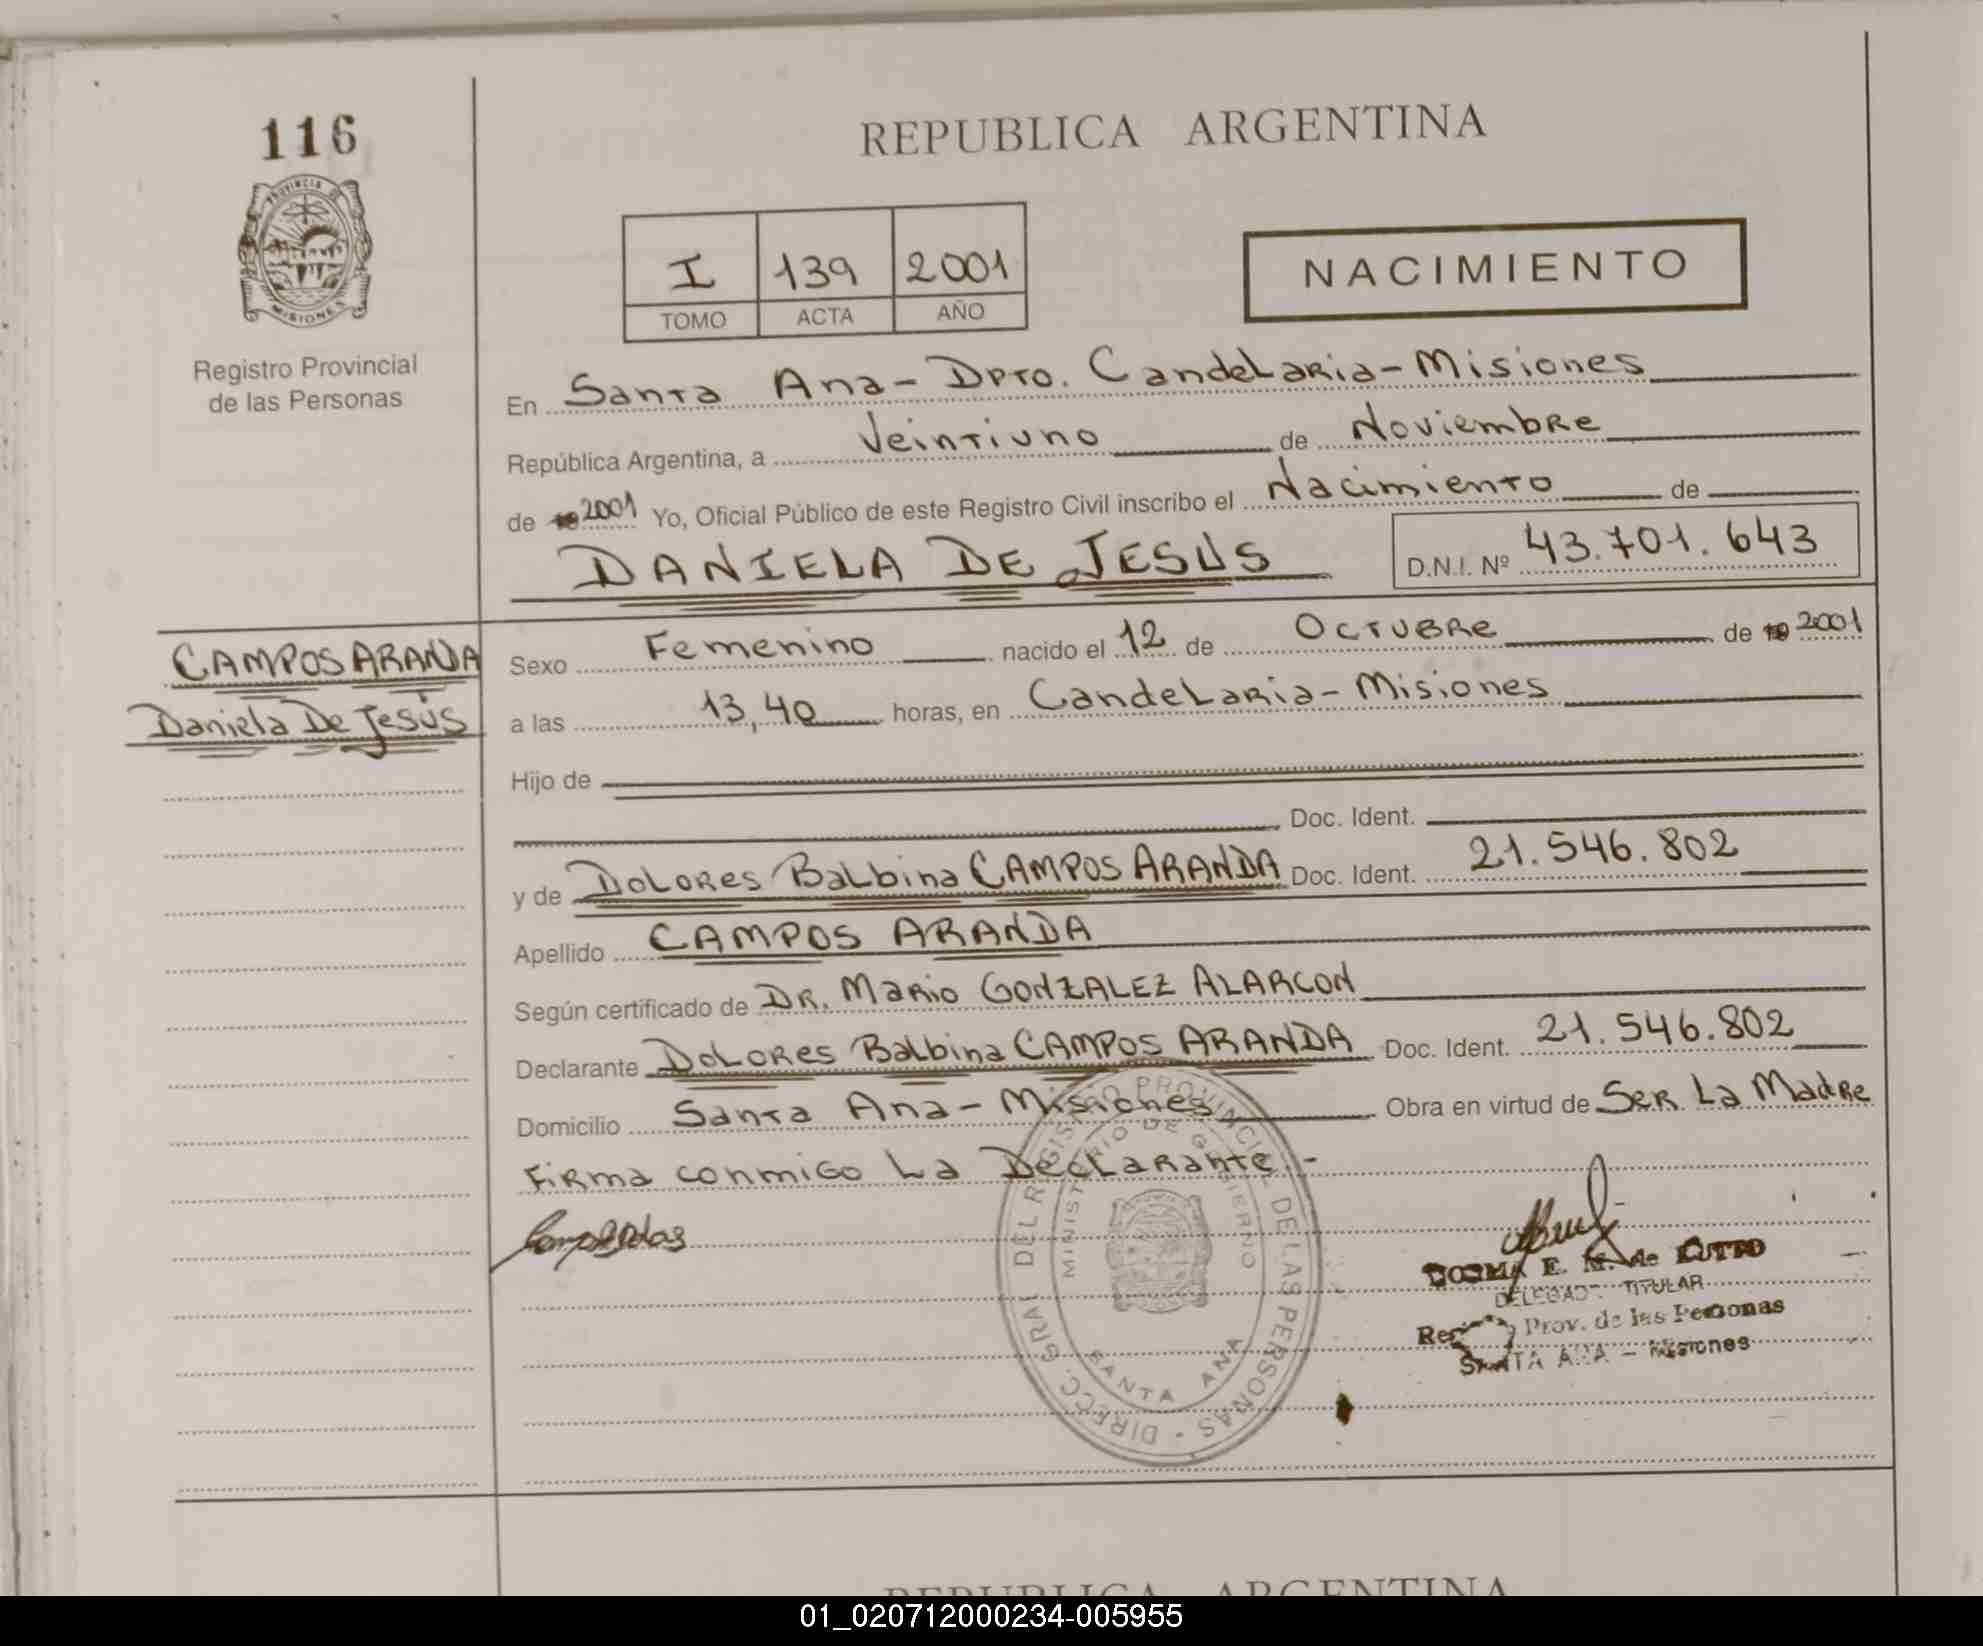 116
REPUBLICA ARGENTINA
PROVINCIA DE
MISIONES
Registro Provincial
de las Personas
I 139 2001
TOMO ACTA AÑO
NACIMIENTO
En Santa Ana - Dpto. Candelaria - Misiones
República Argentina, a Veintiuno de Noviembre
de 2001 Yo, Oficial Público de este Registro Civil inscribo el Nacimiento de
DANIELA DE JESUS D.N.I. Nº 43.701.643
CAMPOS ARANDA
Daniela De Jesús
Sexo Femenino nacido el 12 de Octubre de 2001
a las 13,40 horas, en Candelaria - Misiones
Hijo de
Doc. Ident.
y de Dolores Balbina CAMPOS ARANDA Doc. Ident. 21.546.802
Apellido CAMPOS ARANDA
Según certificado de DR. Mario GONZALEZ ALARCON
Declarante Dolores Balbina CAMPOS ARANDA Doc. Ident. 21.546.802
Domicilio Santa Ana - Misiones Obra en virtud de Ser La Madre
Firma conmigo La Declarante.-
DIRECC. GRAL DEL REGISTRO PROVINCIAL DE LAS PERSONAS
MINISTERIO DE GOBIERNO
SANTA ANA
E. M. de
DELEGADA TITULAR
Prov. de las Personas
SANTA ANA - Misiones
REPUBLICA ARGENTINA
01_020712000234-005955